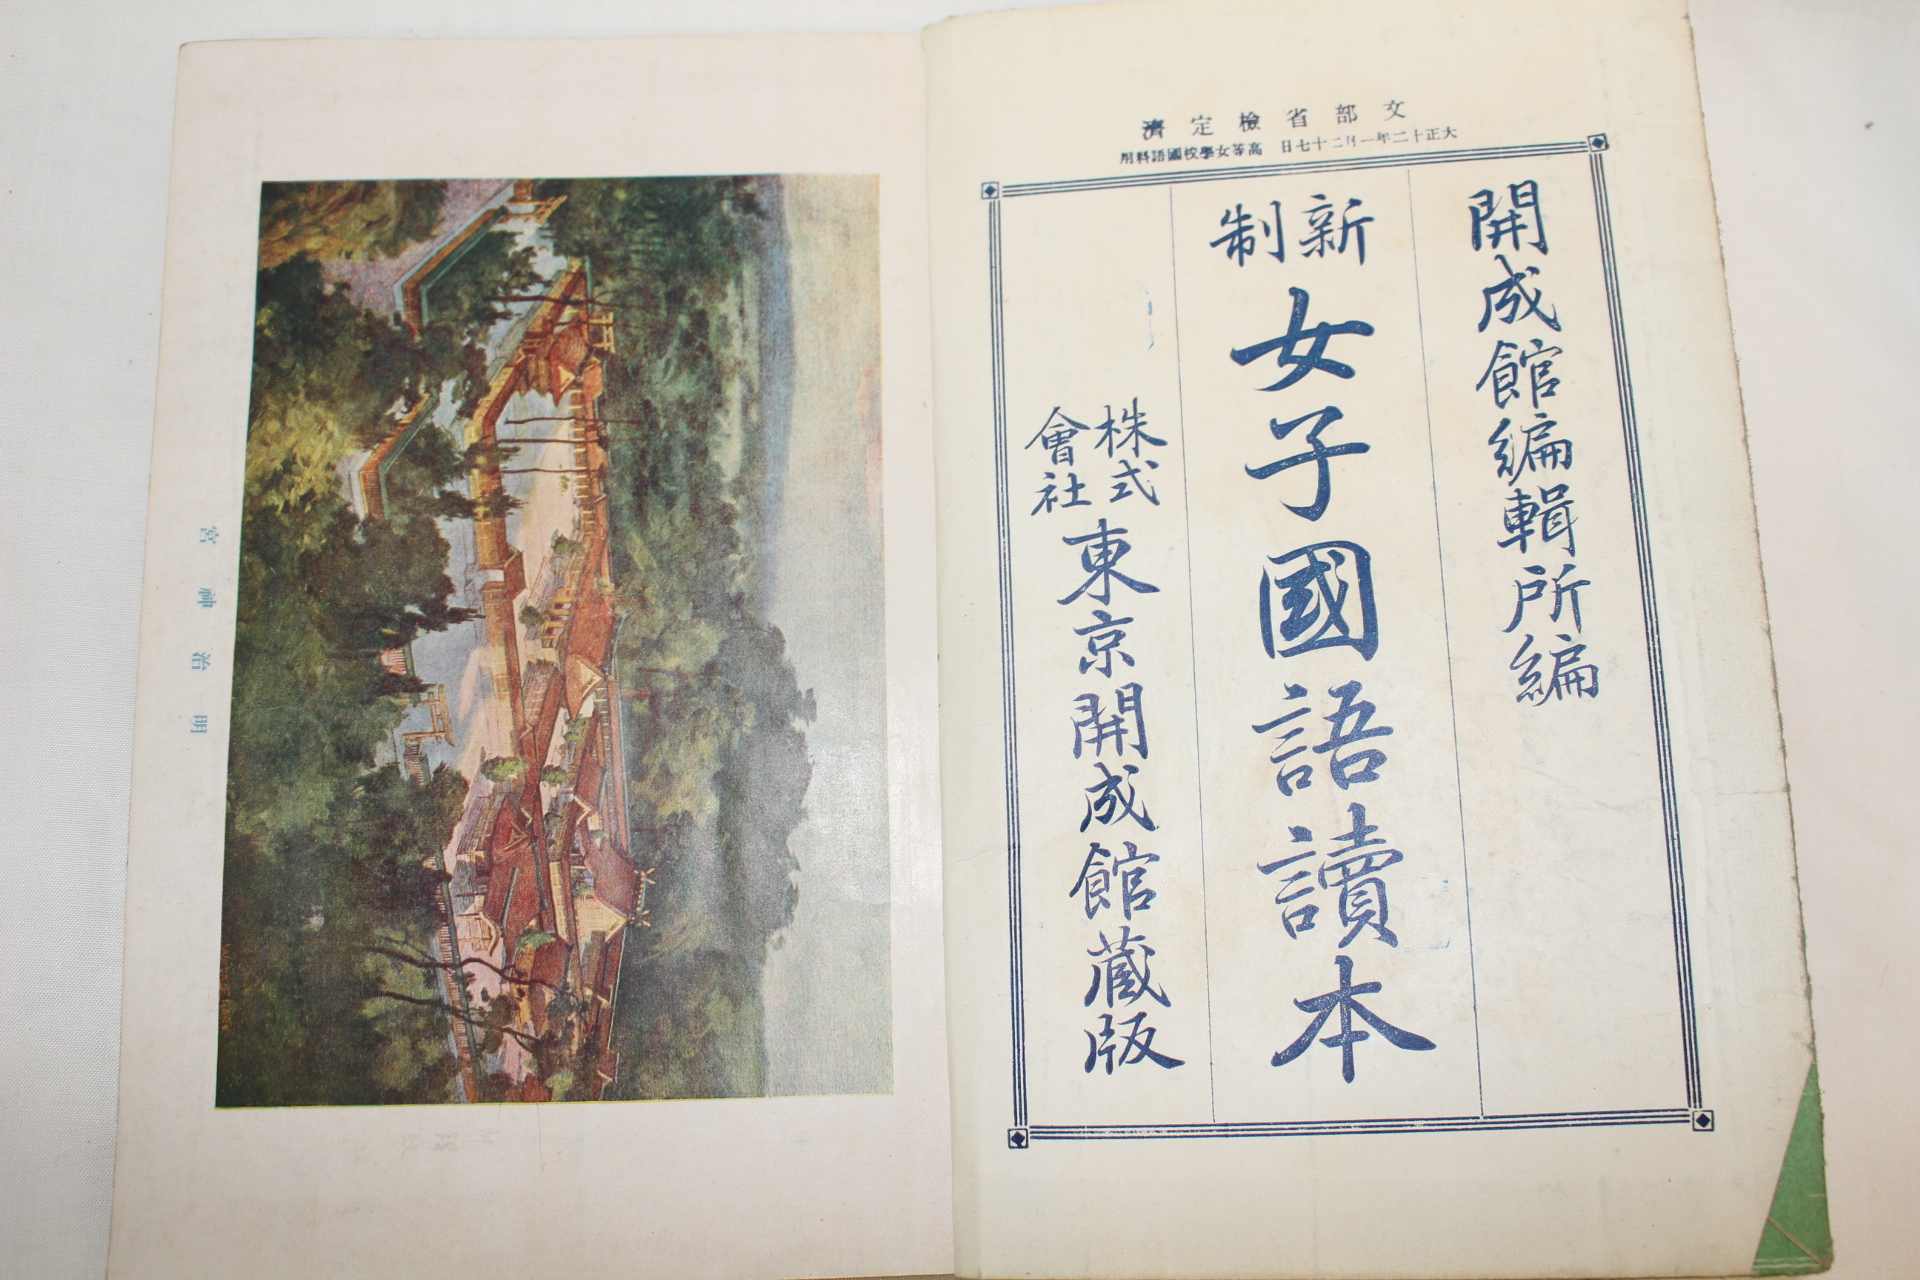 文部省檢定濟
大正十二年一月二十七日 高等女學校國語科用
開成館編輯所編
新制
女子國語讀本
株式
會社
東京開成館藏版
明治神宮